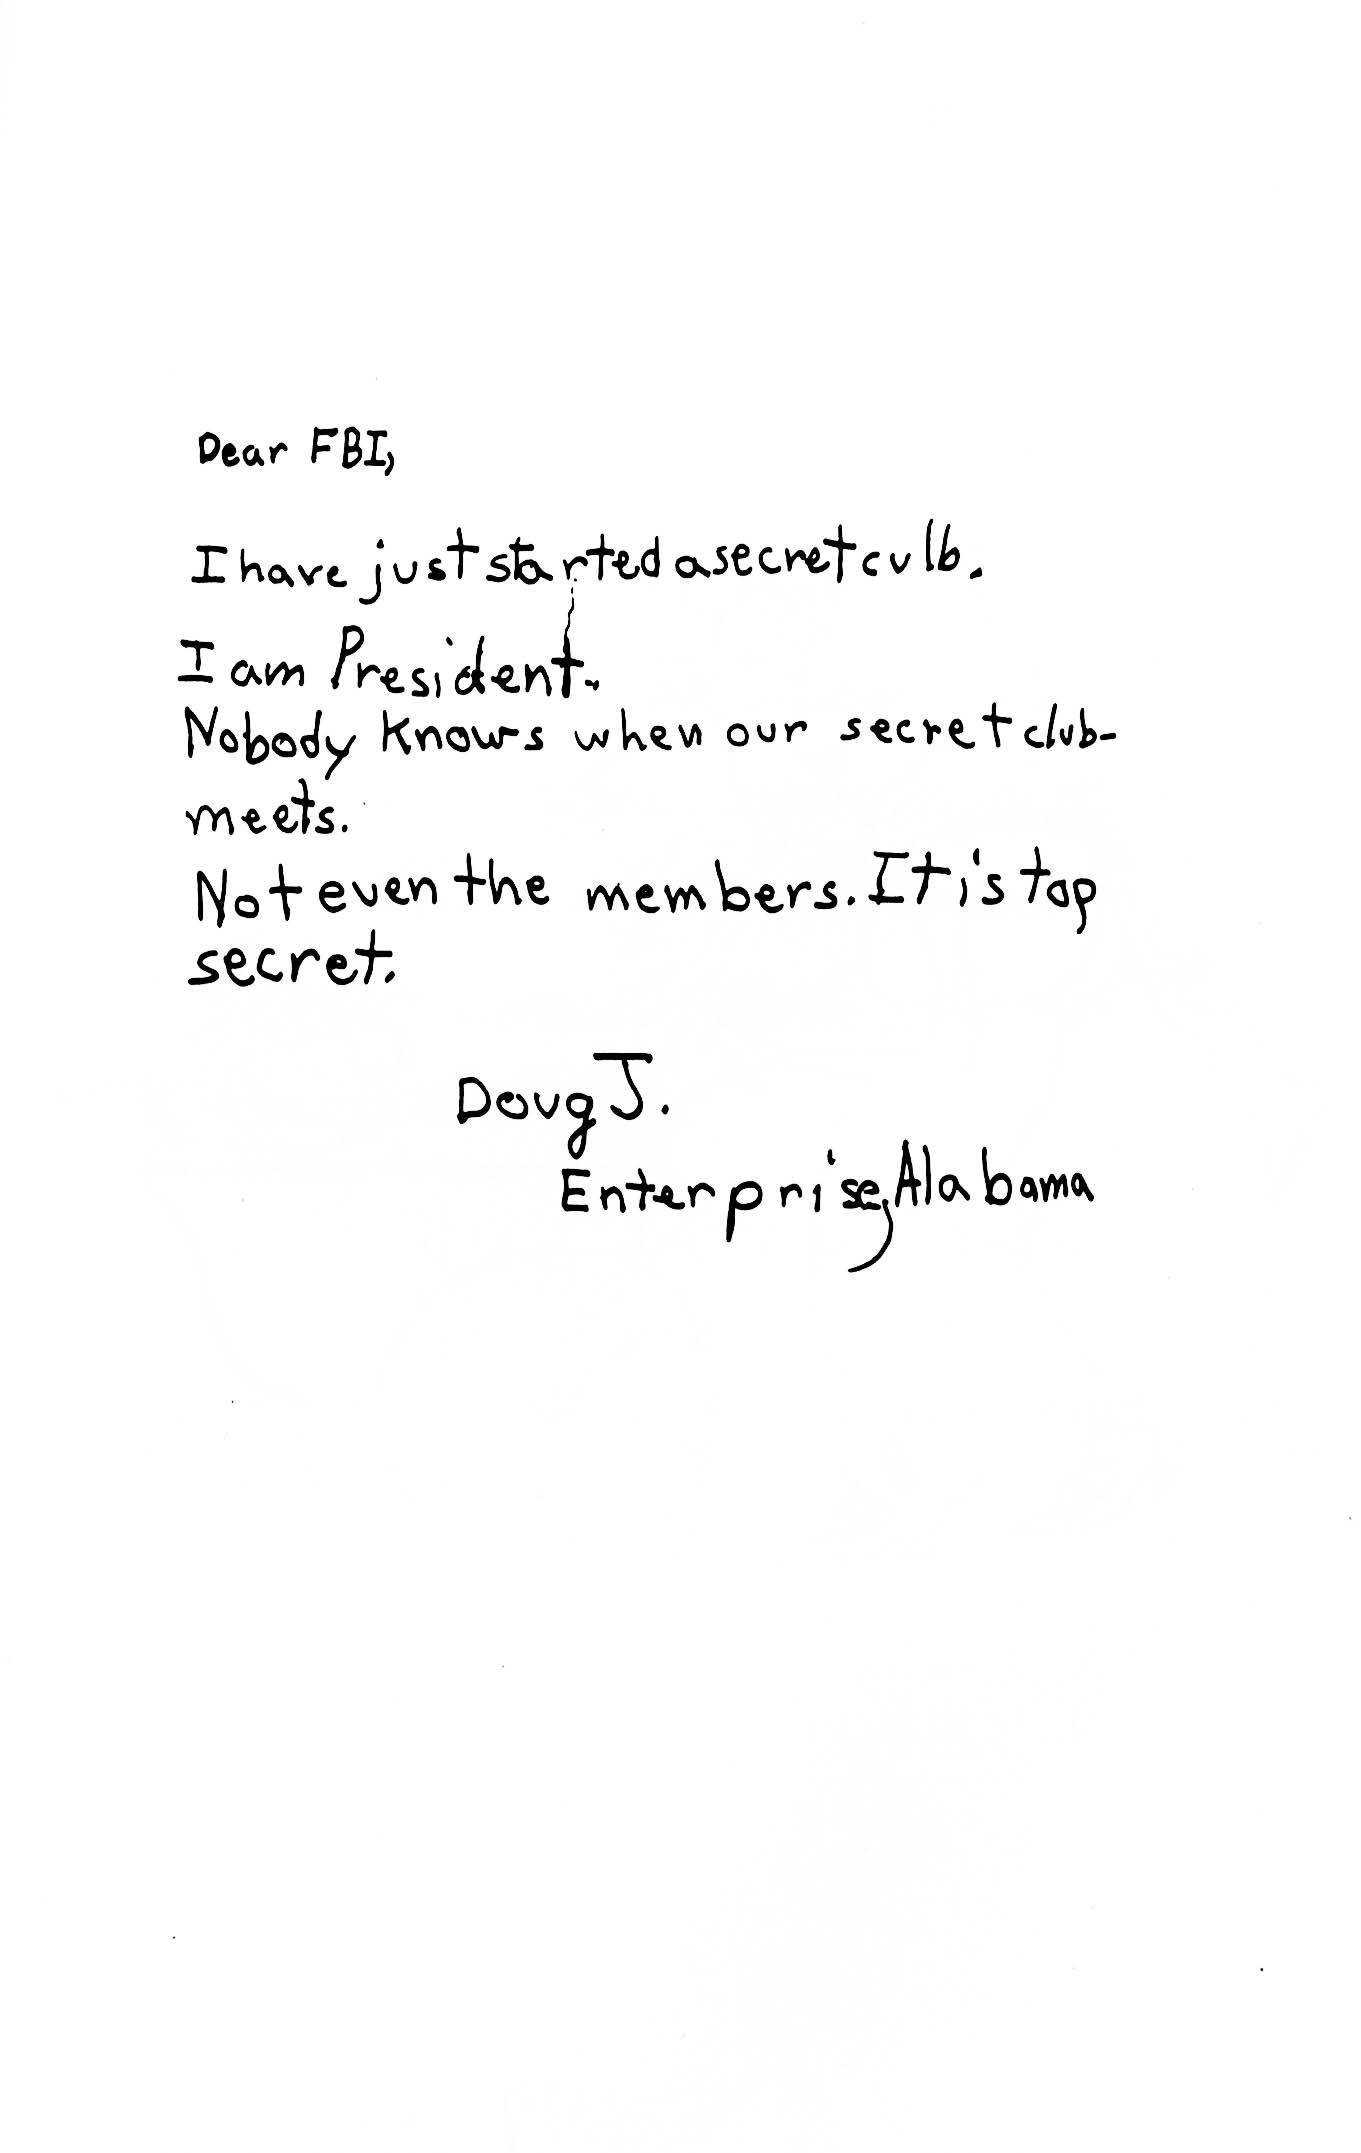 Dear FBI,
I have just started a secret culb.
I am President.
Nobody knows when our secret club-
meets.
Not even the members. It is top
secret.
Doug J.
Enterprise, Alabama